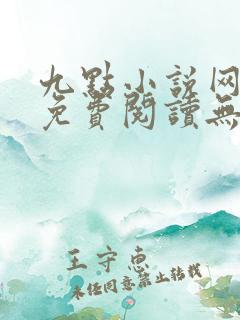 九點小説网
免費閱讀無
王守惠
未经同意禁止转载